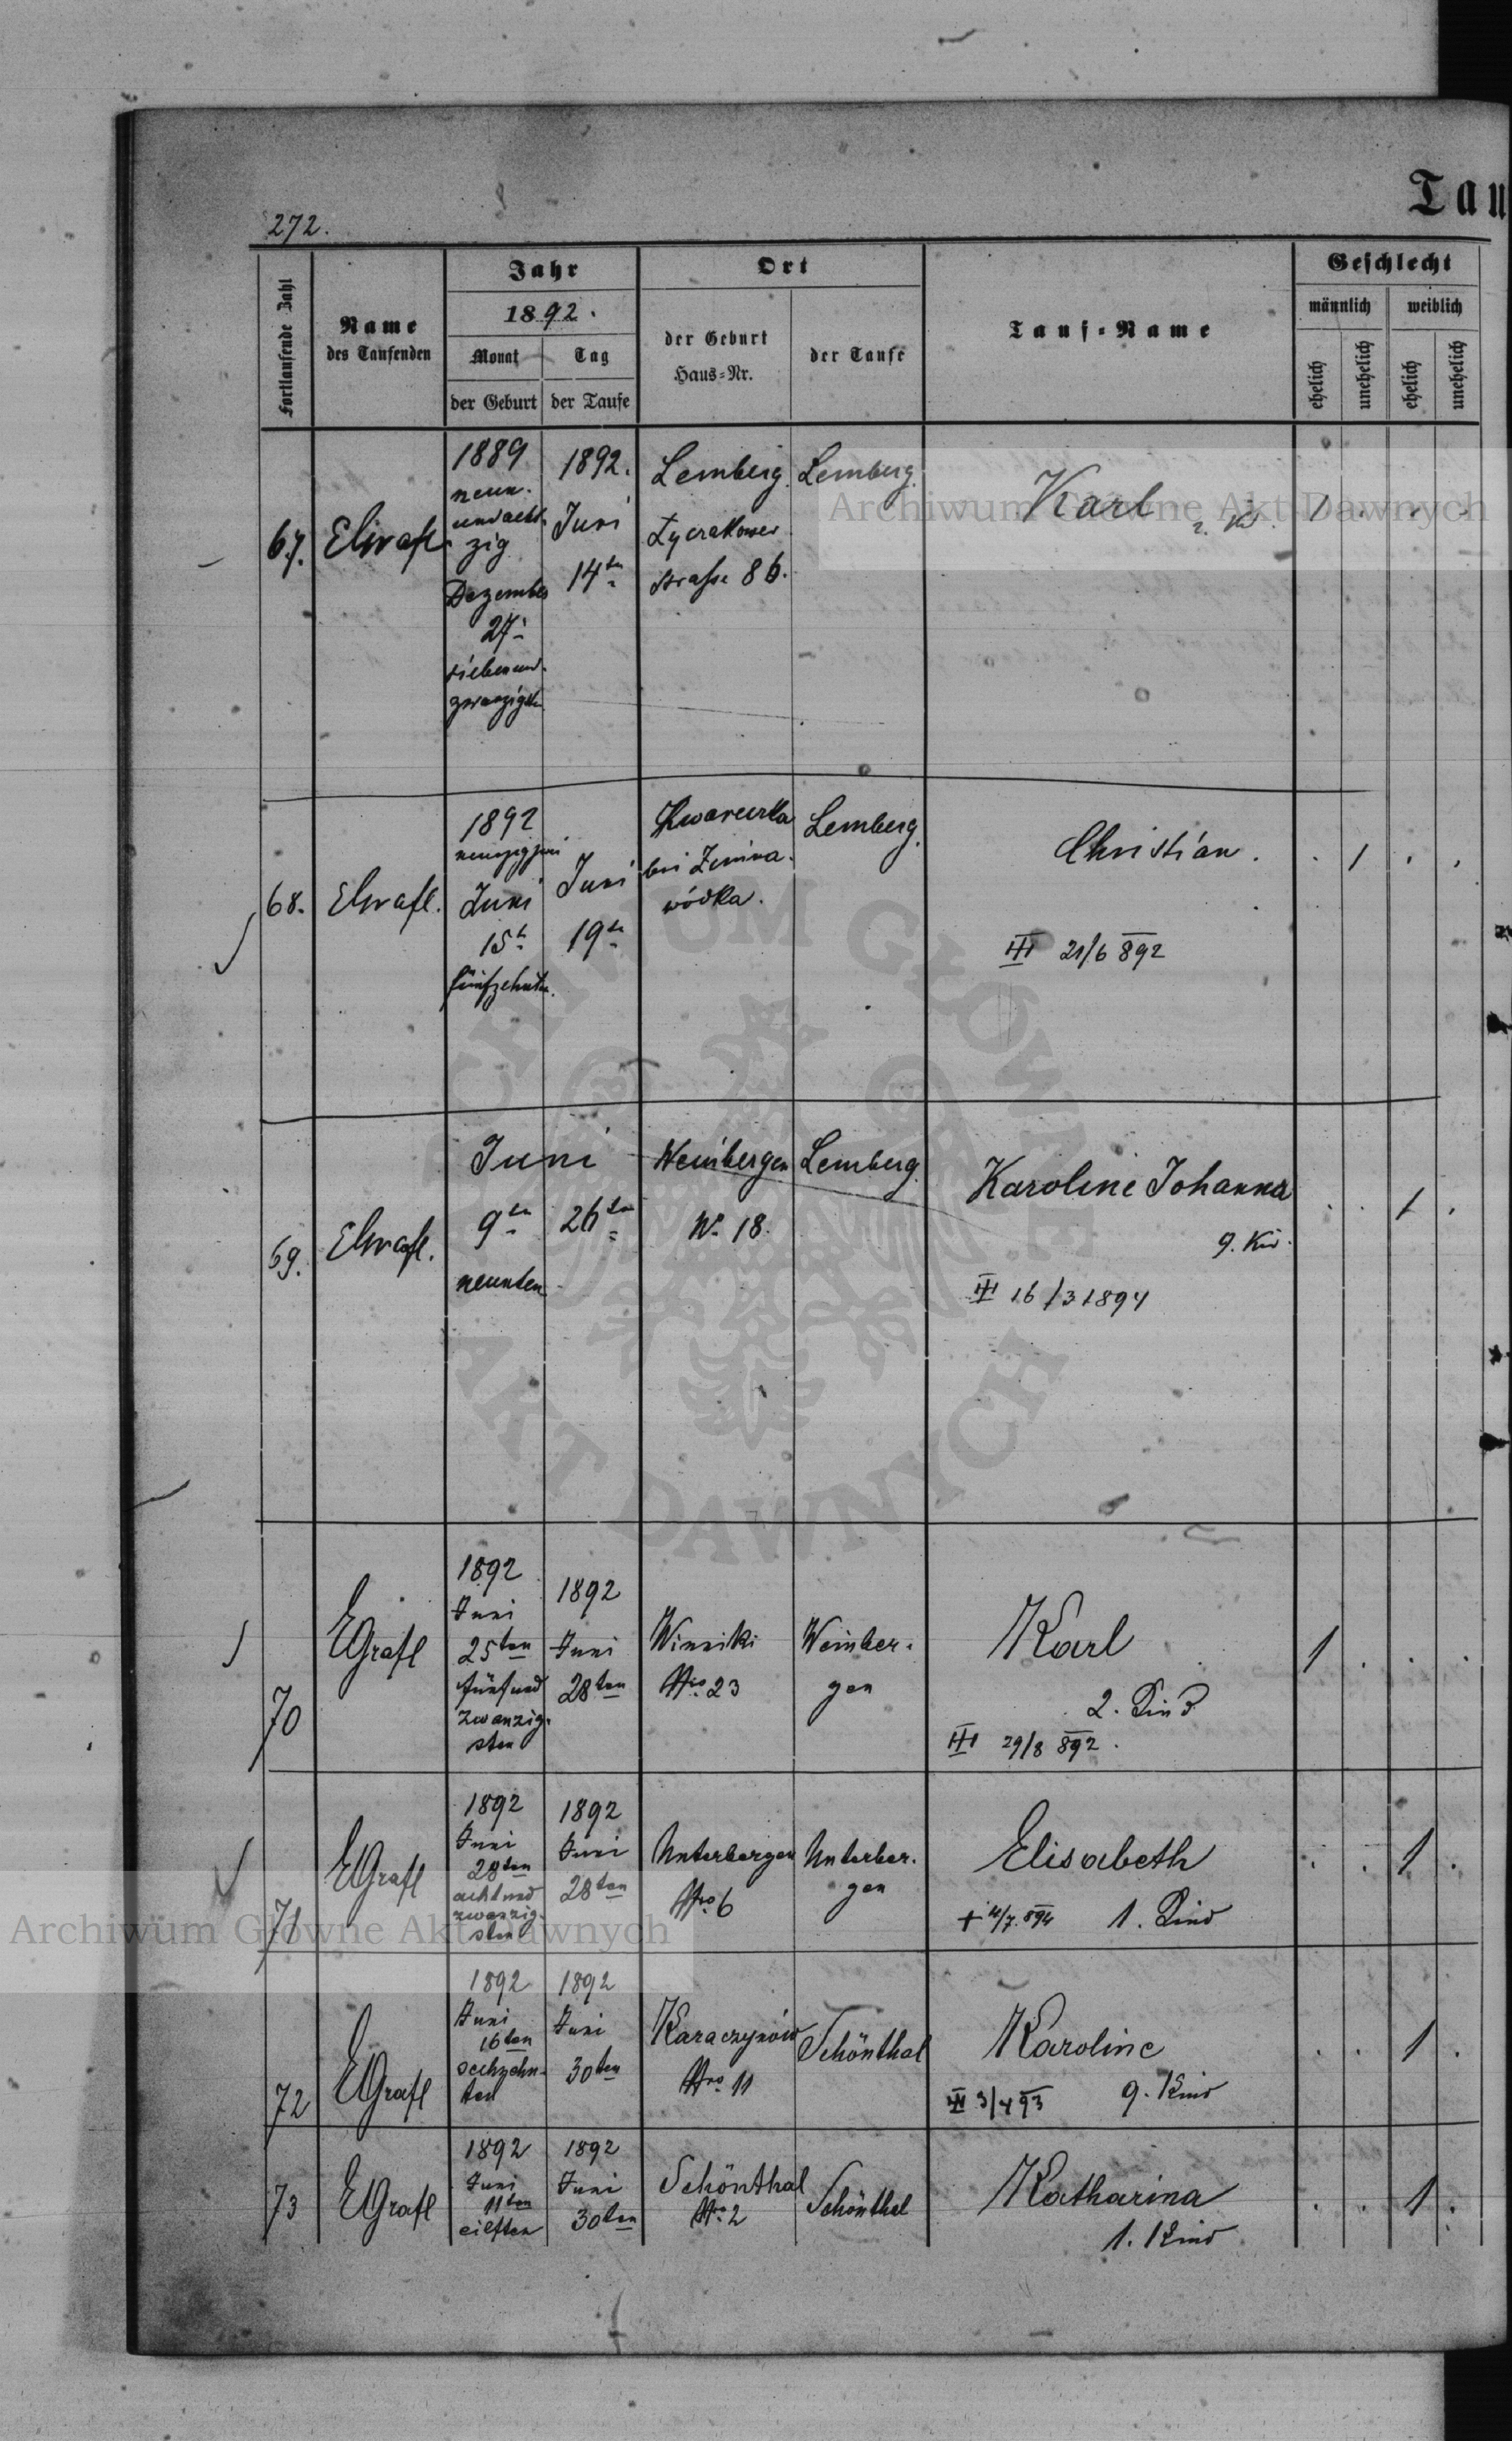 272.
Tau
Fortlaufende Zahl
Name
des Taufenden
Jahr
1892.
Monat
Tag
der Geburt
der Taufe
Ort
der Geburt
Haus-Nr.
der Taufe
Tauf-Name
Geschlecht
männlich
weiblich
ehelich
unehelich
ehelich
unehelich
67.
1889
neun-
undacht-
zig
Dezember
27
siebenund-
zwanzigsten
1892.
Juni
14ten
Lemberg.
Lyczakower
strasse 86.
Lemberg.
Karl
1 . . .
68.
1892
Juni
15t
fünfzehnten.
Juni
19ten
bei Zimna-
wódka.
Lemberg.
Christian.
III 21/6 892
. 1 . .
69.
Juni
9ten
neunten
26ten
Weinbergen
N. 18.
Lemberg.
Karoline Johanna
9. Kid.
III 16/3 1894
. . 1 .
70
EGrafl
1892
Juni
25ten
fünfund
zwanzig-
sten
1892
Juni
28ten
Winniki
Nro 23
Weinber-
gen
Karl
2. Kind
III 29/8 892.
1 . . .
71
EGrafl
1892
Juni
28ten
achtund
zwanzig-
sten
1892
Juni
28ten
Unterbergen
Nro 6
Unterber-
gen
Elisabeth
1. Kind
. . 1 .
72
EGrafl
1892
Juni
16ten
sechzehn-
ten
1892
Juni
30ten
Karaczynów
Nro 11
Schönthal
Karoline
9. Kind
III 3/4 93
. . 1 .
73
EGrafl
1892
Juni
11ten
eilften
1892
Juni
30ten
Schönthal
Nro 2
Schönthal
Katharina
1. Kind
. . 1 .
Archiwum Główne Akt Dawnych
ARCHIWUM GŁÓWNE
AKT DAWNYCH
Archiwum Główne Akt Dawnych